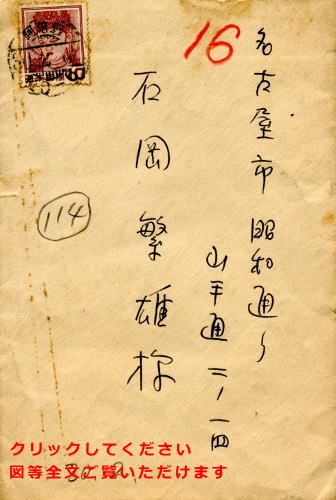 16
名古屋市昭和通り
山手通二ノ一四
石岡繁雄様
114
クリックしてください
図等全文ご覧いただけます